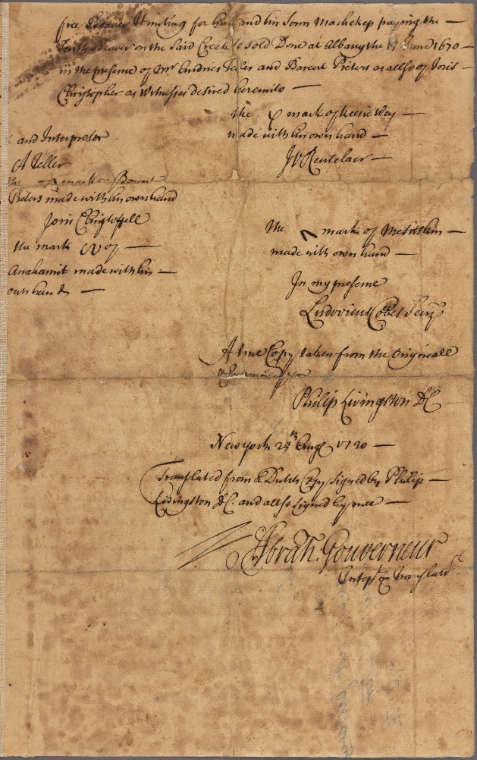 free Hunting for him and his Sonn paying the
on the Said Creek sold Done at Albany the June 1670
in the presence of Mr Andries Teller and Barent Pieters as allso of Joris
Christophel as Witnesses desired hereunto
the mark of Keesie Wey
made with his own hand
JVRentelaer
and Interpreter
A Teller
the mark of Barent
Pieters made with his own hand
Joris Christoffell
the mark of
made with his
own hand
the mark of
made with own hand
In my presence
Ludovicus Cobes Secry
A true Copy taken from the Originall
Philip Livingston DC
New york 24th Augt 1720
Translated from a Dutch Copy signed by Philip
Livingston DC and allso signed by mee
Abrah: Gouverneur